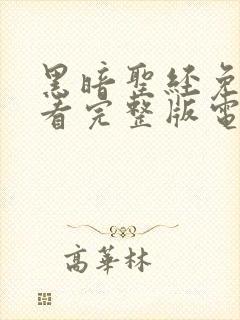 黑暗聖經免
看完整版電
高華林